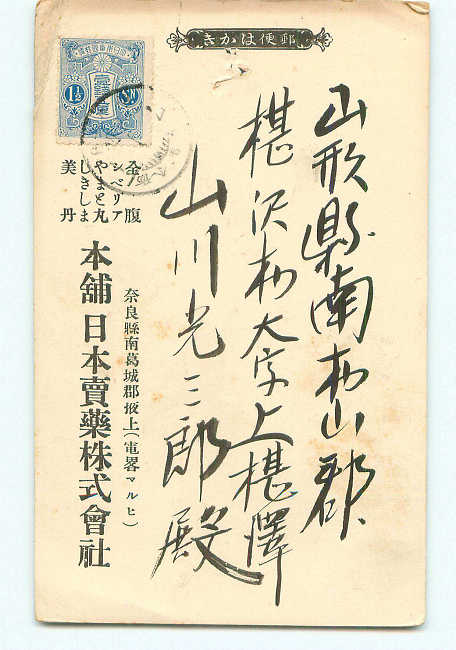 郵便はかき
壹錢五厘
1½ SN
山形縣南村山郡
椹沢村大字上椹澤
山川光三郎殿
全腹
シベリア
やまと丸
しきしま
美丹
奈良縣南葛城郡掖上(電畧マルヒ)
本舖 日本賣藥株式會社